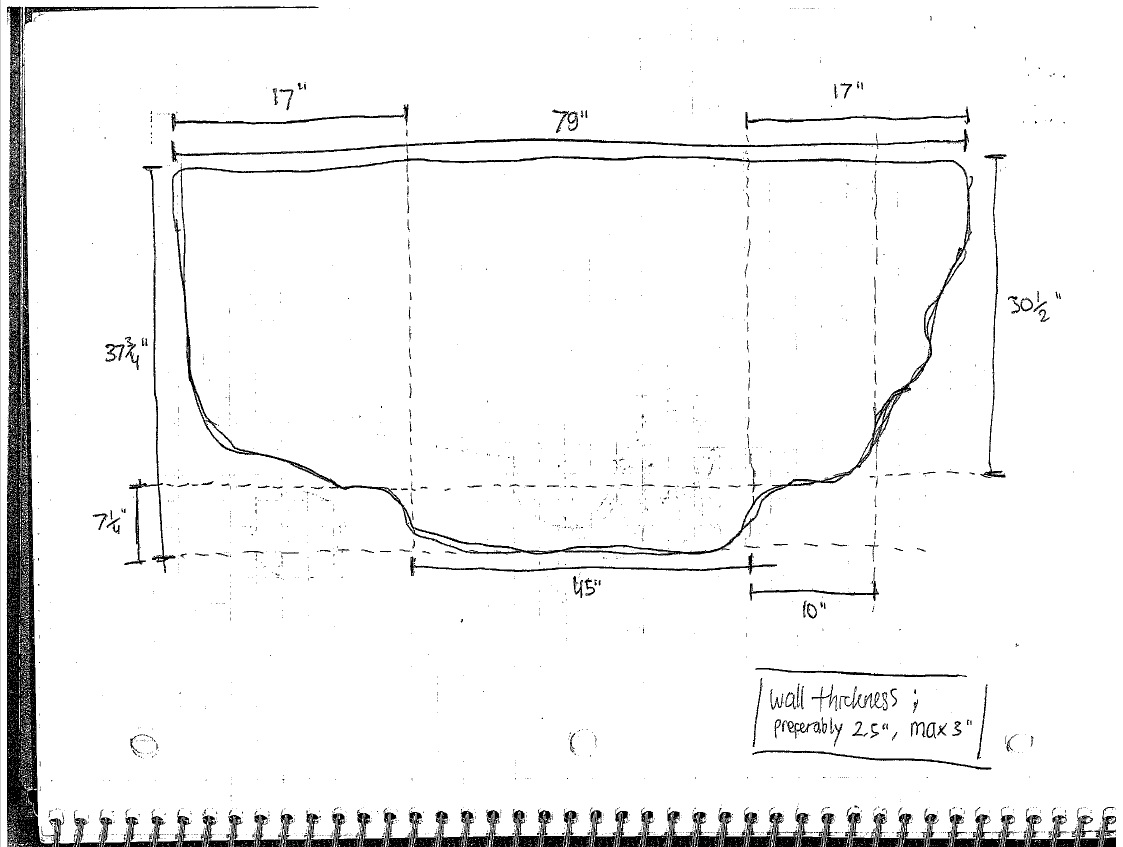 17"
17"
79"
30 1/2"
37 3/4"
7 1/4"
45"
10"
wall thickness ;
preferably 2.5", max 3"